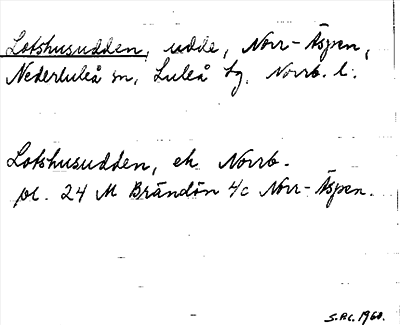 Lotshusudden, udde, Norr-Äspen,
Nederluleå sn, Luleå tg. Norrb. l.
Lotshusudden, ek Norrb.
pl. 24 M Brändön 4/c Norr-Äspen.
1960.